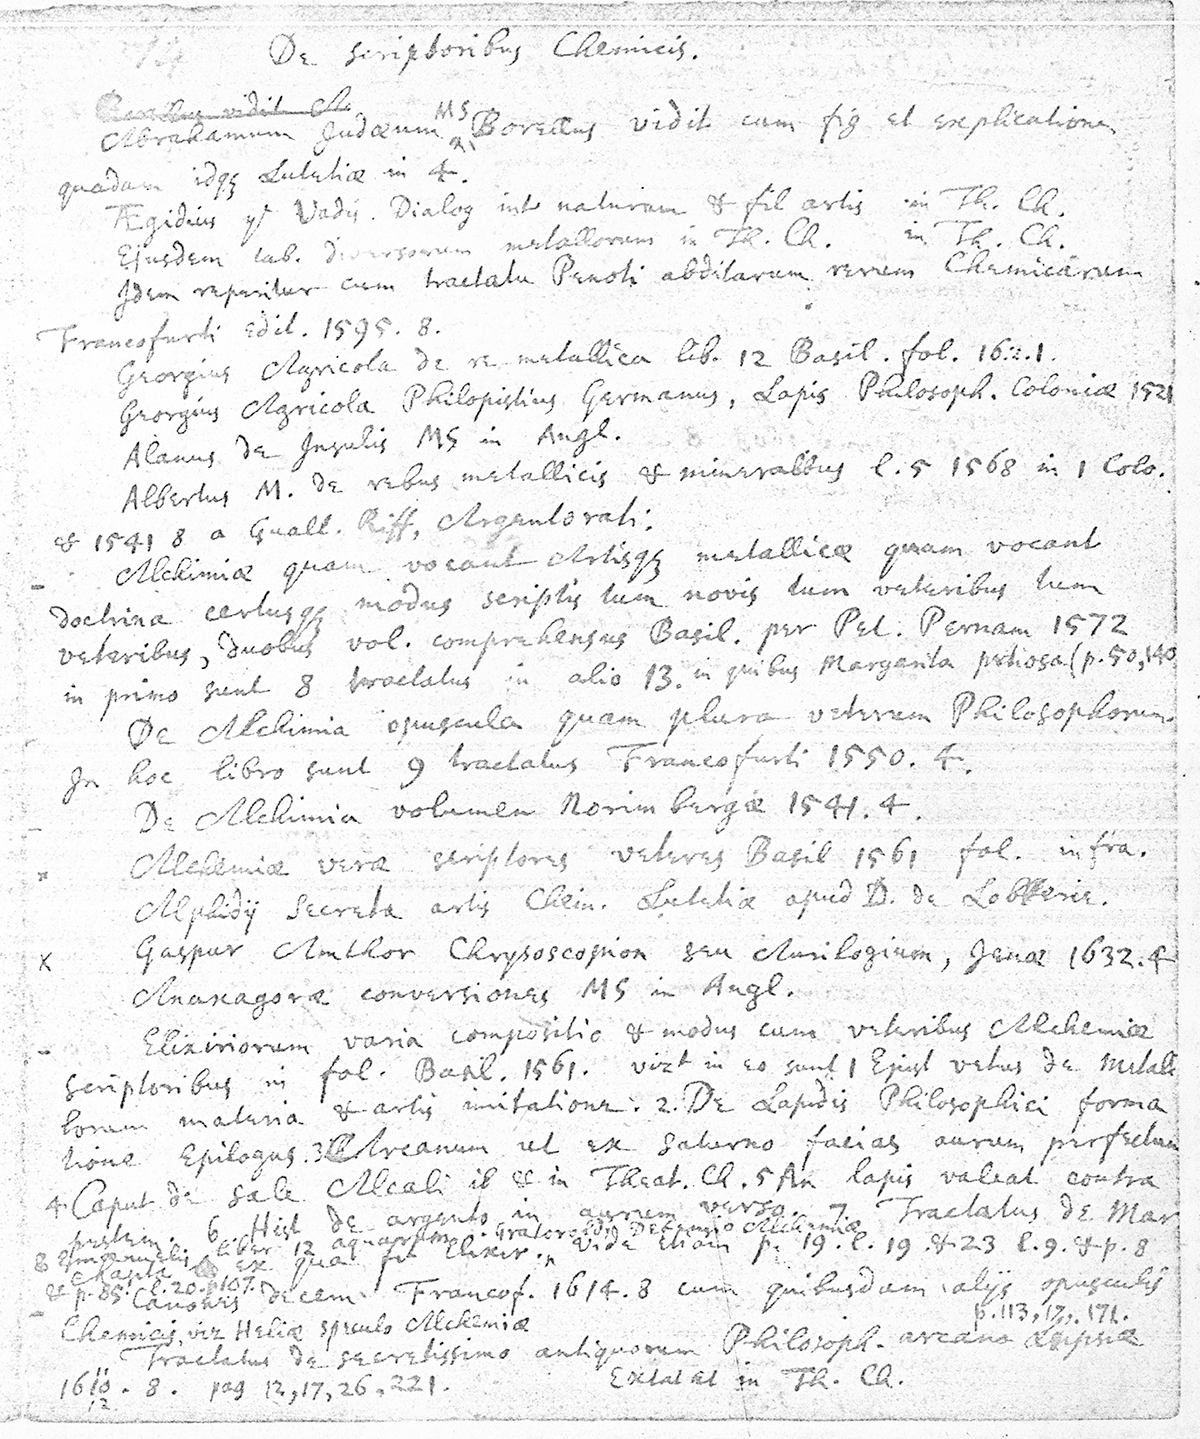 De scriptoribus Chemicis.
Borellus vidit A
Abrahamum Judæum MS Borellus vidit cum fig et explicatione
quadam idq Lutetiæ in 4.
Ægidius de Vadis. Dialog int naturam & fil artis in Th. Ch.
Ejusdem tab. diversorum metallorum in Th. Ch. in Th. Ch.
Idem reperitur cum tractatu Penoti abditarum rerum Chemicarum
Francofurti edit. 1595. 8.
Georgius Agricola de re metallica lib. 12 Basil. fol. 1621.
Georgius Agricola Philopistius Germanus, Lapis Philosoph. Coloniæ 1521
Alanus de Insulis MS in Angl.
Albertus M. de rebus metallicis & mineralibus l. 5 1568 in 1 Colo.
& 1541 8 a Gualt. Riff, Argentorati.
Alchimiæ quam vocant Artisq metallicæ quam vocant
doctrina certusq modus scriptis tum novis tum veteribus tum
veteribus, duobus vol. comprehensus Basil. per Pet. Pernam 1572
in primo sunt 8 tractatus in alio 13. in quibus Margarita pretiosa (p. 50, 140
De Alchimia opuscula quam plura veterum Philosophorum
In hoc libro sunt 9 tractatus Francofurti 1550. 4.
De Alchimia volumen Norimbergiæ 1541. 4.
Alchemiæ veræ scriptores veteres Basil 1561 fol. infra.
Alphidij Secreta artis Chem. Lutetiæ apud D. de
x Gaspar Amthor Chrysoscopion seu Aurilogium, Jenæ 1632. 4
Anaxagoræ conversiones MS in Angl.
Elixiriorum varia compositio & modus cum veteribus Alchemiæ
scriptoribus in fol. Basil. 1561. vizt in eo sunt 1 Epist vetus de Metal
lorum materia & artis imitatione. 2. De Lapidis Philosophici forma
tione Epilogus. 3 Arcanum ut ex Saturno facias aurum perfectum
4 Caput de sale Alcali it & in Theat. Ch. 5 An lapis valeat contra
pestem. 6 Hist de argento in aurum verso. 7. Tractatus de Mar
chasita ex qua fit Elixir. vide Etiam p. 19. l. 19. & 23 l. 9. & p. 8
& p. 85. l. 20. p 107.
8 liber 12 aquarum.
Canones decem Francof. 1614. 8 cum quibusdam alijs opusculis
Chemicis, viz Heliæ speculo Alchemiæ p. 113, 17, 171.
Tractatus de secretissimo antiquorum Philosoph. arcano Lipsiæ
1610. 8. pag 12, 17, 26, 221. Extat et in Th. Ch.
12